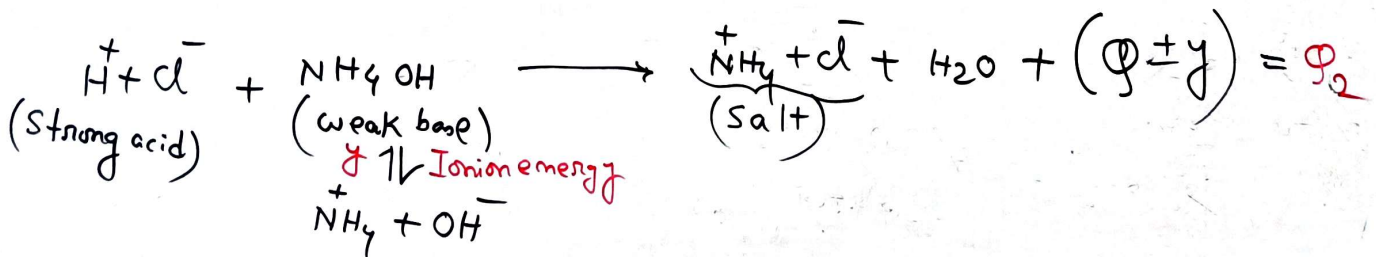 H⁺ + Cl⁻ + NH4OH ⟶ N⁺H4 + Cl⁻ + H2O + (φ ± y) = φ2
(Strong acid) (weak base) (Salt)
y ⇅ Ionion energy
N⁺H4 + OH⁻